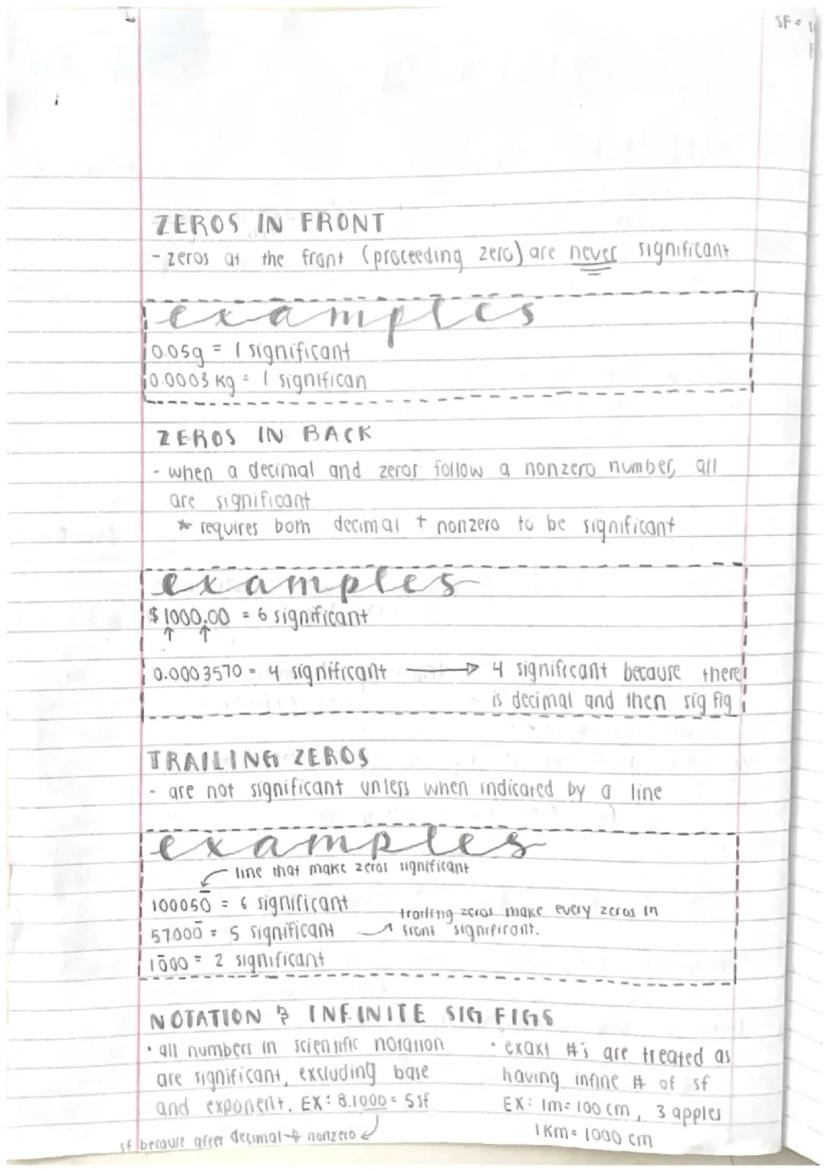 SF =
ZEROS IN FRONT
- zeros at the front (proceeding zero) are never significant
examples
0.05g = 1 significant
0.0003 kg = 1 significan
ZEROS IN BACK
- when a decimal and zeros follow a nonzero number, all
are significant
* requires both decimal + nonzero to be significant
examples
$1000.00 = 6 significant
↑ ↑
0.0003570 = 4 significant → 4 significant because there
is decimal and then sig fig
TRAILING ZEROS
- are not significant unless when indicated by a line
examples
line that make zeros significant
100050̄ = 6 significant
57000̄ = 5 significant
trailing zeros make every zeros in
front significant.
10̄00 = 2 significant
NOTATION & INFINITE SIG FIGS
· all numbers in scientific notation
are significant, excluding base
and exponent. EX: 8.1000 = 5sf
sf because after decimal + nonzero
· exaxt #'s are treated as
having infine # of sf
EX: 1m = 100 cm, 3 apples
1 km = 1000 cm